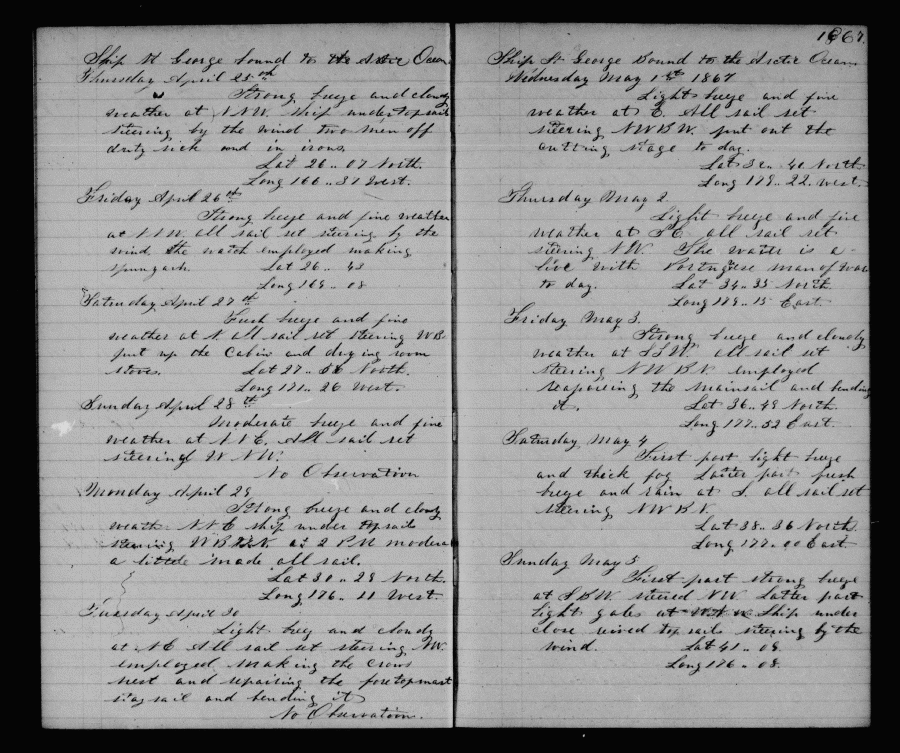 Ship St George bound to the Arctic Ocean
Thursday April 25th
Strong breeze and cloudy
weather at NNW. Ship under topsails
steering by the wind two men off
duty sick and in irons
Lat 26 .. 07 North
Long 166 .. 37 West.
Friday April 26th
Strong breeze and fine weather
at NNW. all sail set steering by the
wind. the watch employed making
spunyarn. Lat 26 .. 43
Long 169 .. 08
Saturday April 27th
Fresh breeze and fine
weather at N. all sail set steering WBN
put up the Cabin and drying room
stoves. Lat 27 .. 58 North.
Long 171 .. 26 West.
Sunday April 28th
Moderate breeze and fine
weather at NNE. All sail set
steering WNW.
No Observation
Monday April 29
Strong breeze and cloudy
weath NNE ship under topsails
steering WBN. at 2 PM modera
a little made all sail.
Lat 30 .. 29 North.
Long 176 .. 11 West.
Tuesday April 30
Light brey and cloudy
at NE All sail set steering NW.
employed making the crows
nest and repairing the foretopmast
staysail and bending it
No Observation.
1867.
Ship St George Bound to the Arctic Ocean
Wednesday May 1st 1867
Light breeze and fine
weather at E. All sail set
steering NWBW. put out the
cutting stage to day.
Lat 32 .. 40 North
Long 179 .. 22. West.
Thursday May 2
Light breeze and fine
weather at SE all sail set
steering NW. The water is a-
live with Portugese man of war
to day. Lat 34 .. 35 North
Long 179 .. 15 East
Friday May 3.
Strong breeze and cloudy
weather at SSW. all sail set
steering NWBN employed
reapairing the mainsail and bending
it. Lat 36 .. 49 North.
Long 177 .. 52 East.
Saturday May 4
First part light breeze
and thick fog Latter part fresh
breeze and rain at S. all sail set
steering NWBN.
Lat 38 .. 36 North
Long 177 .. 00 East
Sunday May 5
First part strong breeze
at SBW steered NW Latter part
light gales at Ship under
close reived top sails steering by the
wind. Lat 41 .. 09.
Long 176 .. 08.